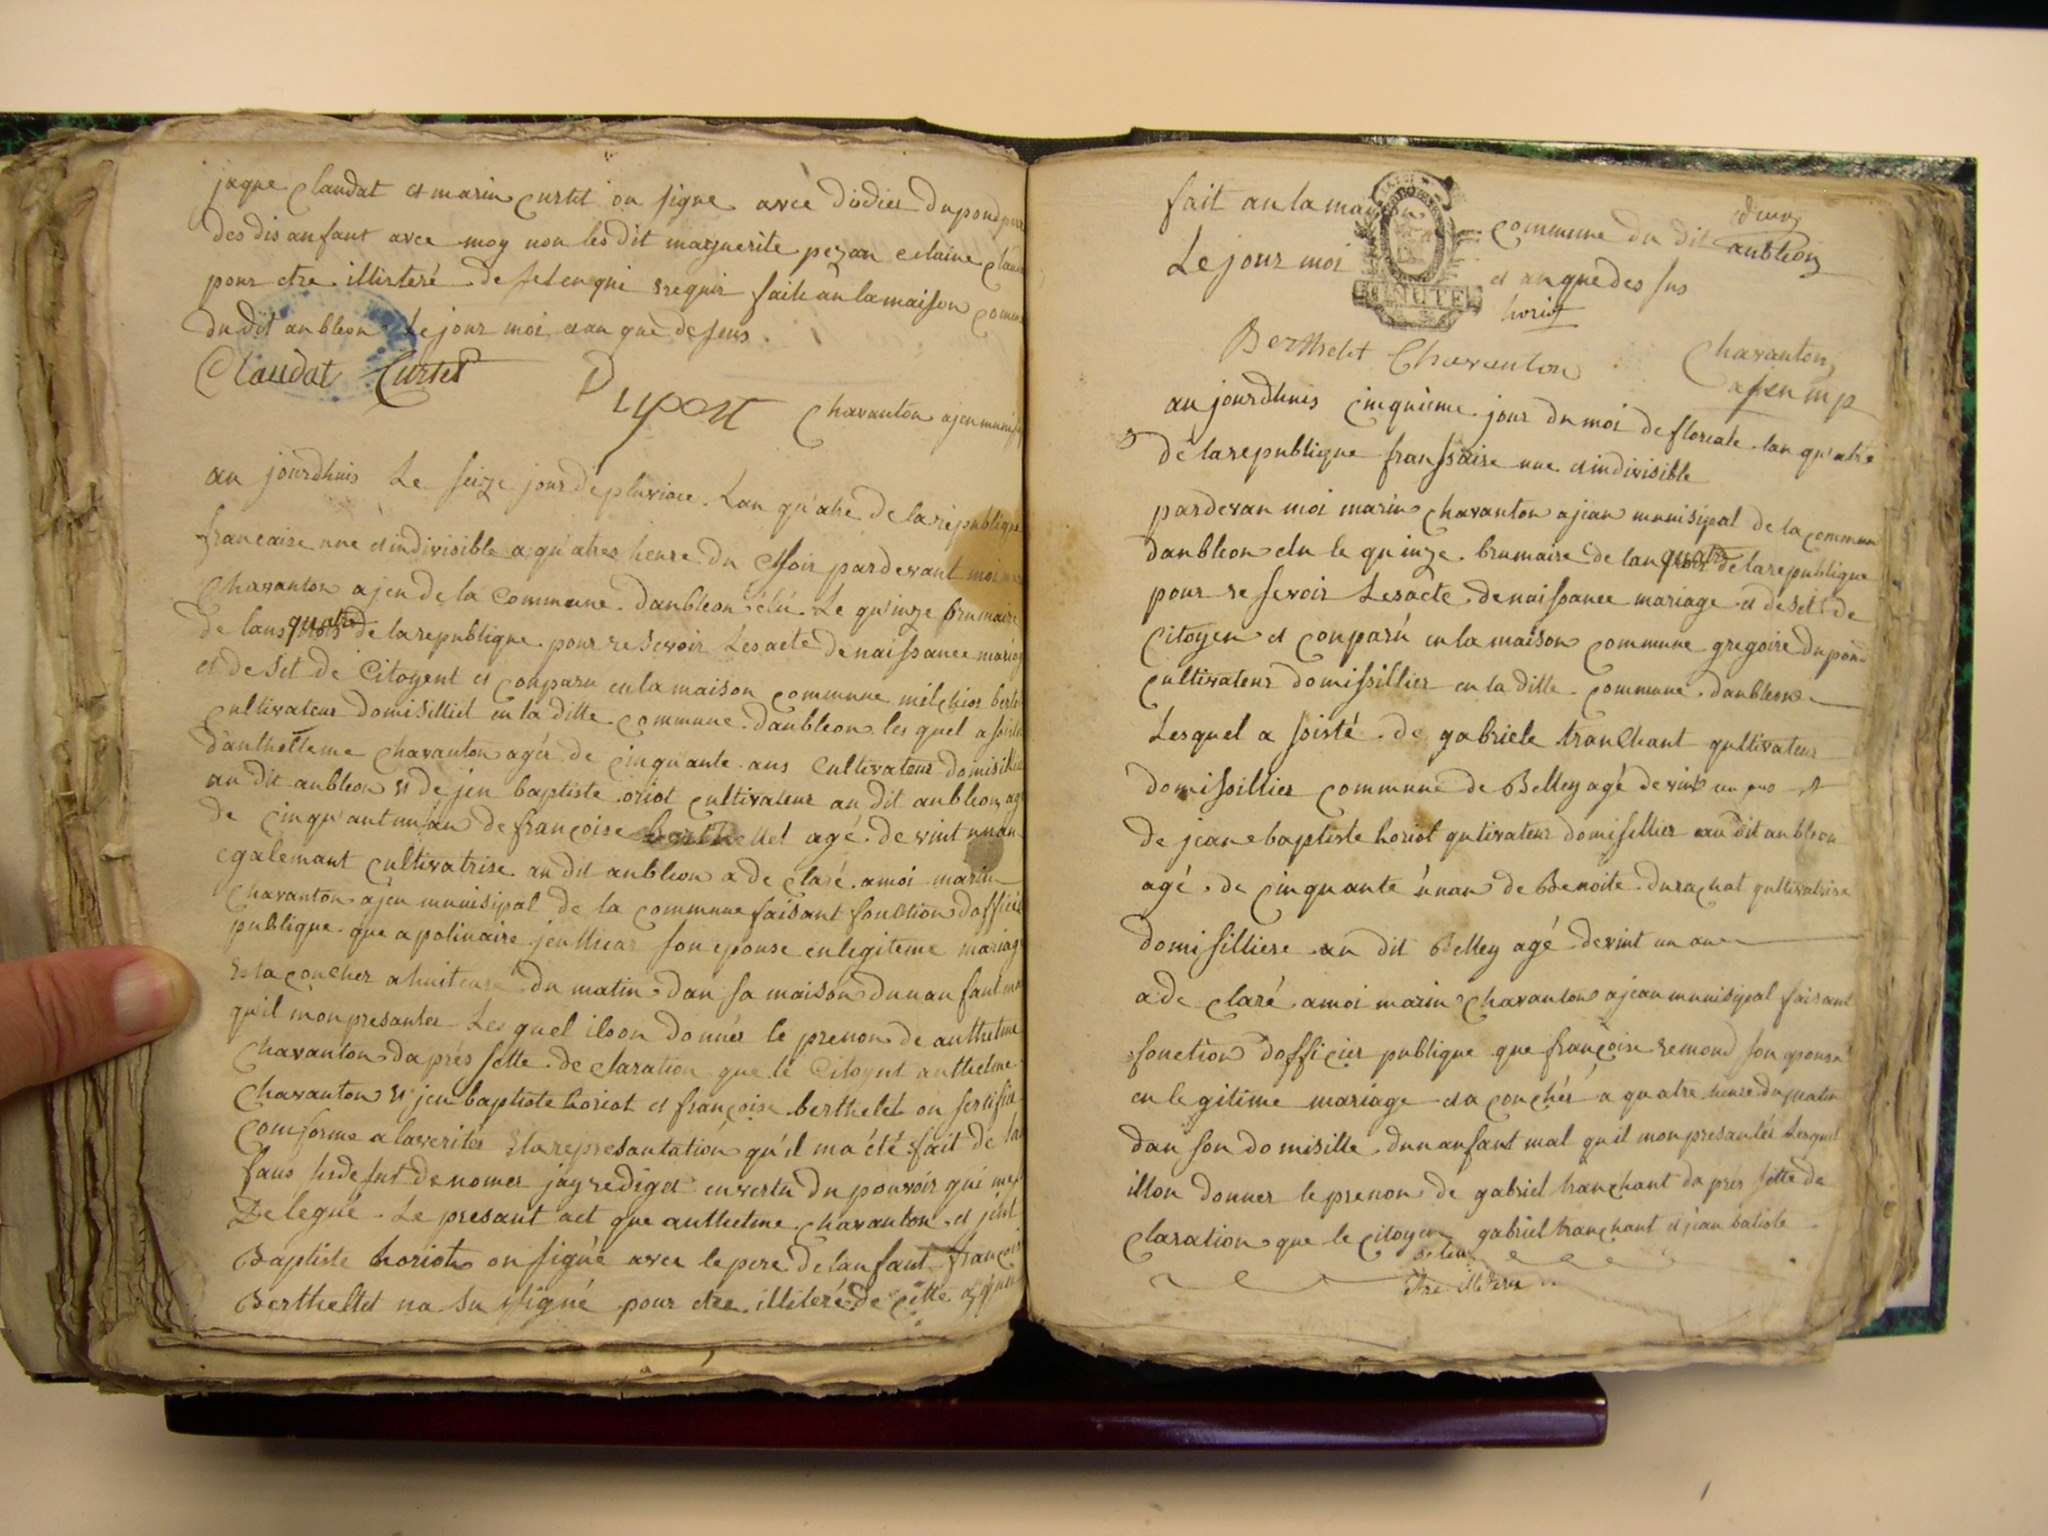 jaque Claudat et marin Curtet on signe avec didier dupond
des dis anfant avec moy non les dit marguerite pezan et claine
pour etre illisteré de set en qui requir faite an la maison
du dit aubleon Le jour moi et an que desseus
Claudat Curtet
Dupont
Chavanton ajen
au jourdhuis Le seize jour de pluviose Lan qu'atre de la republique
francaise une et indivisible a qu'atres heure du soir pardevant moi
Chavanton ajen de la Commune daubleon élú Le qu'inze brumaire
de lans quatre de la republique pour resevoir Les acte de naissance
et de set de Citoyent et conparu en la maison commune melchior
cultivateur domisilliet en la ditte commune daubleon les quel
d'anthelleme chavanton agée de cinquante ans Cultivateur
au dit aubleon et de jen baptiste oriot cultivateur au dit aubleon
de cinqu'ant un an de françoise berthellet agé de vint un an
egalemant cultivatrise au dit aubleon a de claré a moi marin
chavanton ajen munisipal de la commune faisant fonction
publique que apolinaire son epouse en legiteme mariage
acoucher a huit du matin dan sa maison dun an fant
qu'il mon presanter Les quel ilson donner le prenon de anthelme
chavanton da prés sette de claration que le Citoynt anthelme
chavanton et jen baptiste horiot et françoise berthelet on sertifié
conforme a la veritée et la represantation qu'il ma été fait de
fans sus denomer jay rediget en vertu du pouvoir qui
Delegué Le presant act que anthelme chavanton et
Baptiste horiot on signé avec le pere de lanfant
Berthellet na su signé pour etre illiteré de cette
fait an la commune du dit aubleon
Le jour moi et an que des sus
MINUTE
horiot
Berthelet Chavanton
Chavanton
ajen mp
au jourdhuis cinquieme jour du moi de floreale lan qu'atre
de la republique franssaise une et indivisible
pardevan moi marin chavanton ajean munisipal de la commun
daubleon elu le quinze brumaire de lan quatre de la republique
pour resevoir Les acte de naissance mariage et de set de
Citoyen et conparú en la maison commune gregoire
cultivateur domissillier en la ditte commune daubleon
Lesquel a ssisté de gabriele tranchant qultivateur
domissillier commune de Belley agé de vint un
de jean baptiste horiot qultivateur domisillier au dit aubleon
agé de cinquante únan de Benoite durachat qultivatrise
domisilliere au dit Belley agé de vint un an
a de claré a moi marin chavanton ajean munisipal faisant
fonction dofficier publique que françoise remond son epouse
en legitime mariage et a conchér a quatre heure du matin
dan son domisille dun anfant mal quil mon presanter Lesquel
illon donner le prenon de gabriel tranchant da prés sette de
claration que le citoyen gabriel tranchant et jean batiste